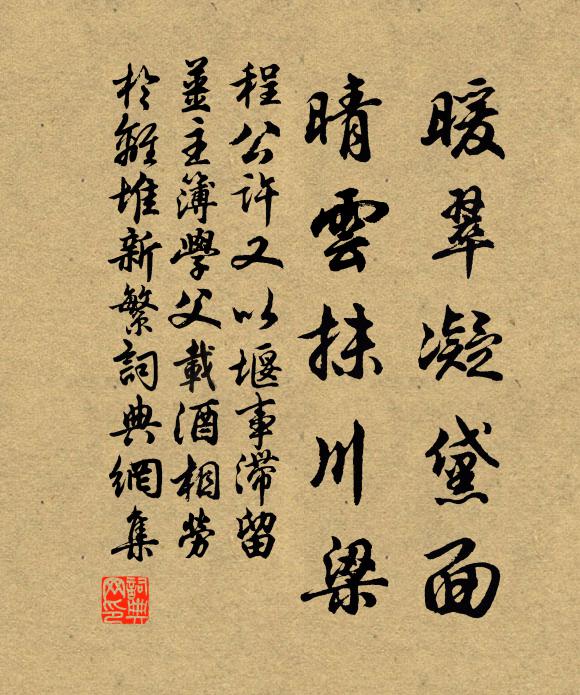 暖翠凝黛面
晴雲抹川梁
程公許又以堰事滯留
薑主簿學父載酒相勞
於離堆新繁詞典網集
詞典网印